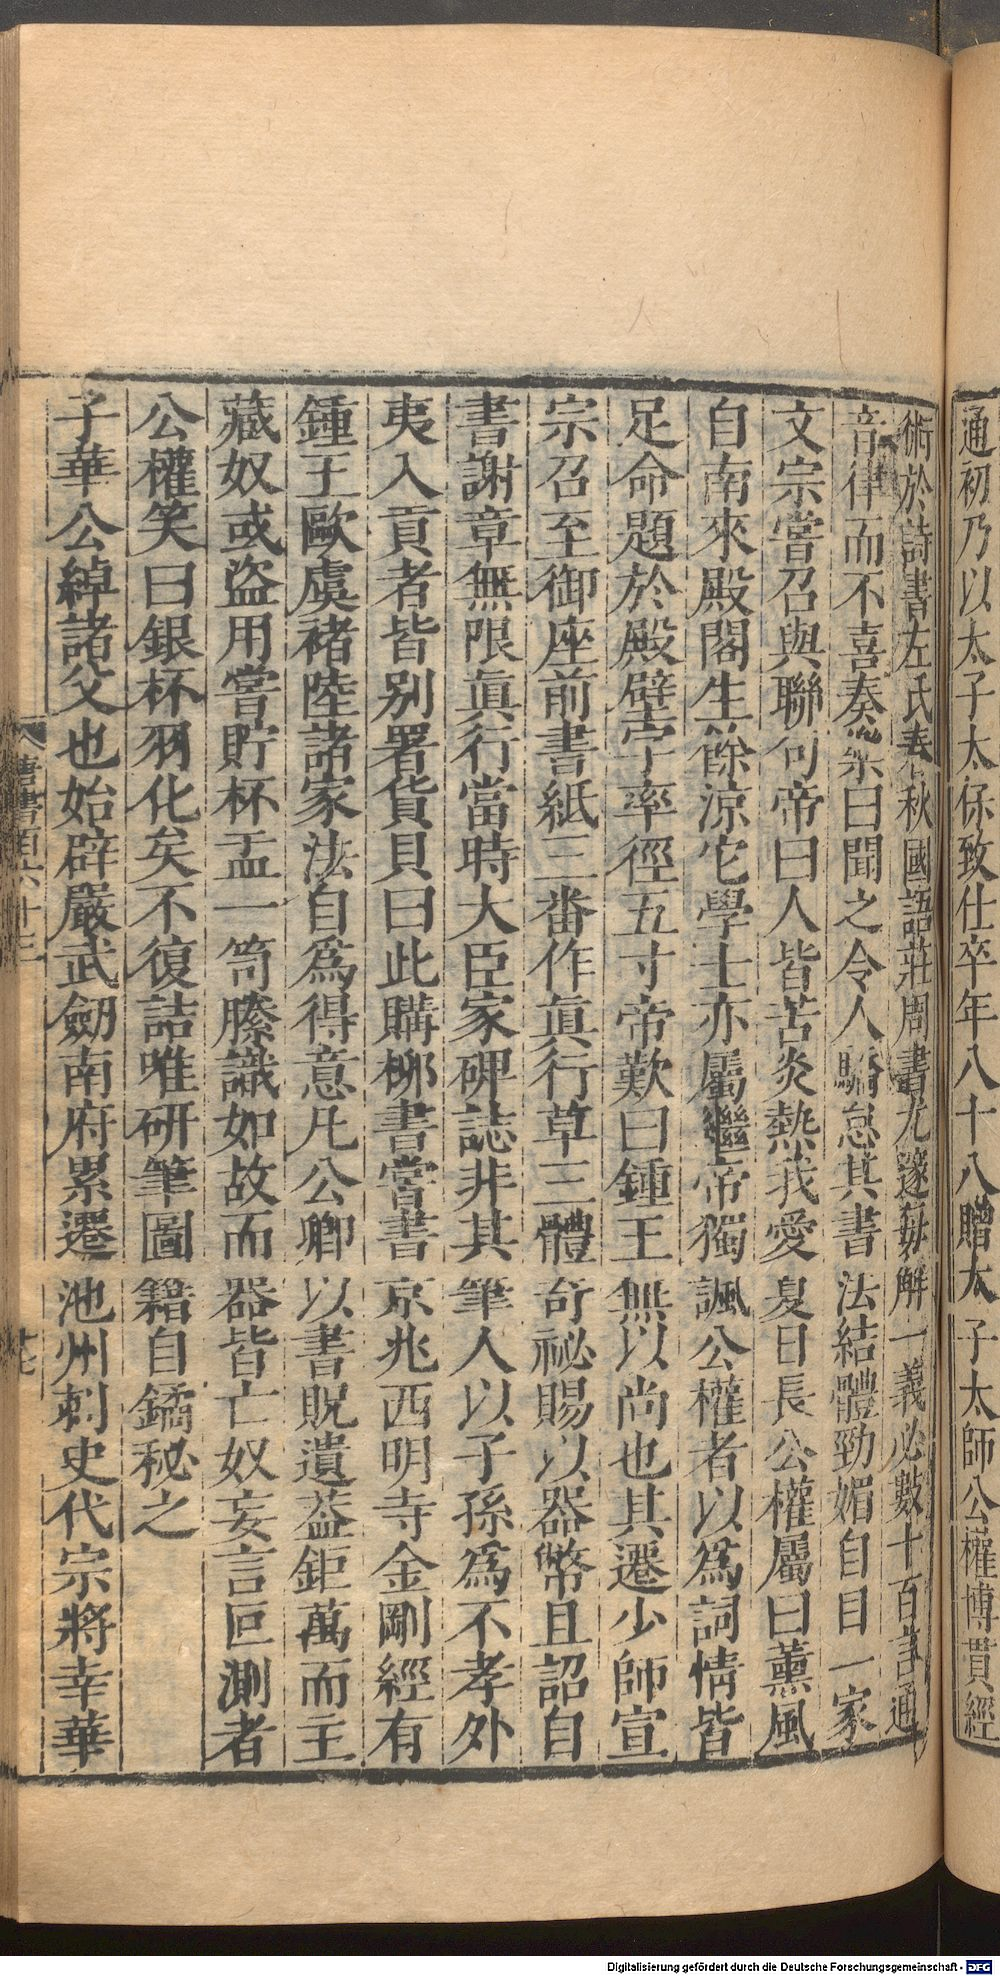 通初乃以太子太保致仕卒年八十八贈太子太師公權博貫經
術於詩書左氏春秋國語莊周書尤邃每解一義必數十百言通
音律而不喜奏樂曰聞之令人驕怠其書法結體勁媚自目一家
文宗嘗召與聯句帝曰人皆苦炎熱我愛夏日長公權屬曰薰風
自南來殿閣生餘涼它學士亦屬繼帝獨諷公權者以爲詞情皆
足命題於殿壁字率徑五寸帝歎曰鍾王無以尚也其遷少師宣
宗召至御座前書紙三番作眞行草三體奇祕賜以器幣且詔自
書謝章無限眞行當時大臣家碑誌非其筆人以子孫爲不孝外
夷入貢者皆別署貨貝曰此購柳書嘗書京兆西明寺金剛經有
鍾王歐虞褚陸諸家法自爲得意凡公卿以書貺遺葢鉅萬而主
藏奴或盜用嘗貯杯盂一笥縢識如故而器皆亡奴妄言叵測者
公權笑曰銀杯羽化矣不復詰唯研筆圖籍自鐍秘之
子華公綽諸父也始辟嚴武劒南府累遷池州刺史代宗將幸華
唐書百六十三
廿七
Digitalisierung gefördert durch die Deutsche Forschungsgemeinschaft - DFG